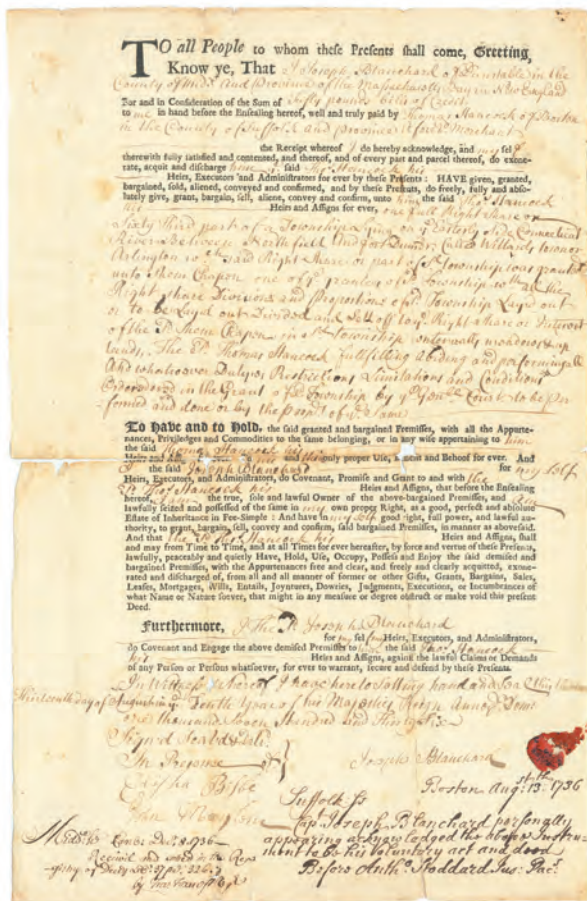 TO all People to whom these Presents shall come, Greeting,
Know ye, That I Joseph Blanchard of Dunstable in the
County of Midx. And Province of the Massachusetts Bay in New England
For and in Consideration of the Sum of fifty pounds bills of Credit
to me in hand before the Ensealing hereof, well and truly paid by Thomas Hancock of Boston
in the County of Suffolk and province aforesd. Merchant
the Receipt whereof I do hereby acknowledge, and my self
therewith fully satisfied and contented, and thereof, and of every part and parcel thereof, do exone-
rate, acquit and discharge him ye. said Thos. Hancock his
Heirs, Executors and Administrators for ever by these Presents: HAVE given, granted,
bargained, sold, aliened, conveyed and confirmed, and by these Presents, do freely, fully and abso-
lutely give, grant, bargain, sell, aliene, convey and confirm, unto him the said Thos. Hancock
his Heirs and Assigns for ever, one full Right share or
Sixty Third part of a Township Lying on ye. Easterly side Connecticut
River Between Northfield and fort Dumer, Called Willards town or
Arlington wch. said Right Share or part of sd. Township was granted
unto Shem Chapon one of ye. grantees of sd. Township with all the
Right share Divisions and proportions of sd. Township Layd out
or to be Layd out Divided and Sett off to ye. Right share or Interest
of the sd. Shem Chapon in sd. township
lands, The sd. Thomas Hancock fullfilling abiding and performing all
And whatsoever Dutys Restrictions Limitations and Conditions
in the Grant of sd. Township by ye. Genll. Court to be per-
formed and done or by the of ye. Same
To Have and to Hold, the said granted and bargained Premises, with all the Appurte-
nances, Priviledges and Commodities to the same belonging, or in any wise appertaining to him
the said Thomas Hancock his
Heirs and only proper Use, Benefit and Behoof for ever. And
I the said Joseph Blanchard for my self
Heirs, Executors and Administrators, do Covenant, Promise and Grant to and with the
sd. Thos. Hancock his Heirs and Assigns, that before the Ensealing
hereof, I am the true, sole and lawful Owner of the above-bargained Premises, and am
lawfully seized and possessed of the same in my own proper Right, as a good, perfect and absolute
Estate of Inheritance in Fee-Simple: And have in my self good right, full power, and lawful au-
thority, to grant, bargain, sell, convey and confirm, said bargained Premises, in manner as abovesaid.
And that the sd. Thos. Hancock his Heirs and Assigns, shall
and may from Time to Time, and at all Times for ever hereafter, by force and vertue of these Presents,
lawfully, peaceably and quietly Have, Hold, Use, Occupy, Possess and Enjoy the said demised and
bargained Premises, with the Appurtenances free and clear, and freely and clearly acquitted, exone-
rated and discharged of, from all and all manner of former or other Gifts, Grants, Bargains, Sales,
Leases, Mortgages, Wills, Entails, Joyntures, Dowries, Judgments, Executions, or Incumbrances of
what Name or Nature soever, that might in any measure or degree obstruct or make void this present
Deed.
Furthermore, I The sd. Joseph Blanchard
for my self Heirs, Executors, and Administrators,
do Covenant and Engage the above demised Premises to him the said Thos. Hancock
his Heirs and Assigns, against the lawful Claims or Demands
of any Person or Persons whatsoever, for ever to warrant, secure and defend by these Presents.
In Witness whereof I have hereto sett my hand and Seal this
Thirteenth day of August in ye. Tenth Year of his Majestys Reign Annoq. Domi
one thousand Seven Hundred and Thirty Six
Signd Seald & deld.
In Presence
Joseph Blanchard
Boston Augst. 13th. 1736
Suffolk ss
Capt. Joseph Blanchard personally
appearing acknowledged the above Instru-
ment to be his voluntary act and deed
Before Antho. Stoddard Jus: Pacs.
Middx. ss Decr. 8. 1736
Received and